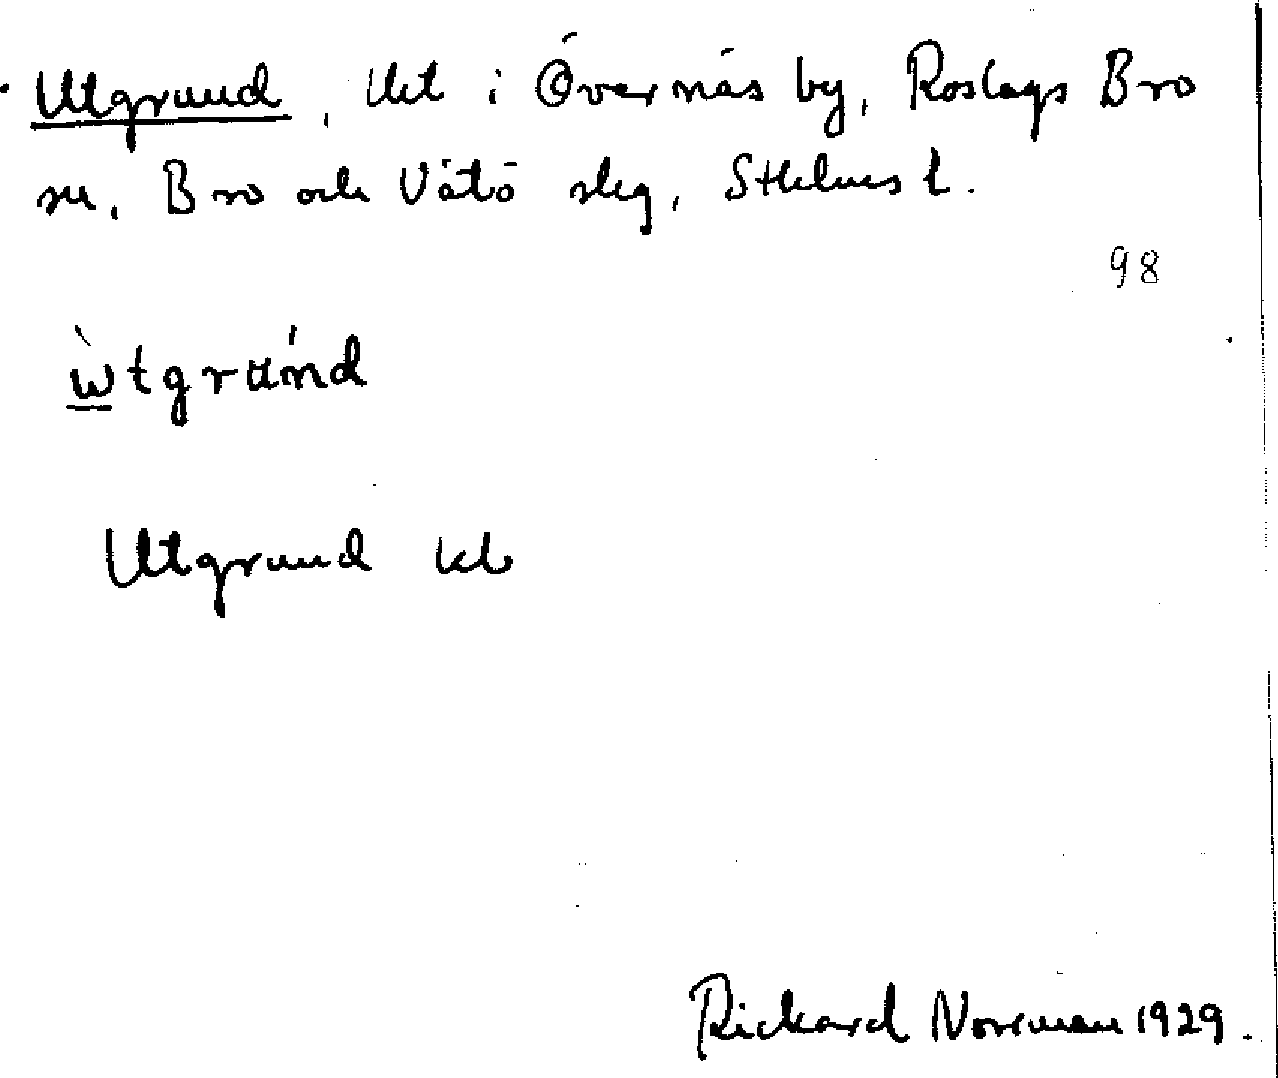 Utgrund, skt i Övernäs by, Roslags Bro
sn, Bro och Vätö slg, Sthlms l.
98
ẁtgrund
Utgrund kb
Rickard Norrman 1929.